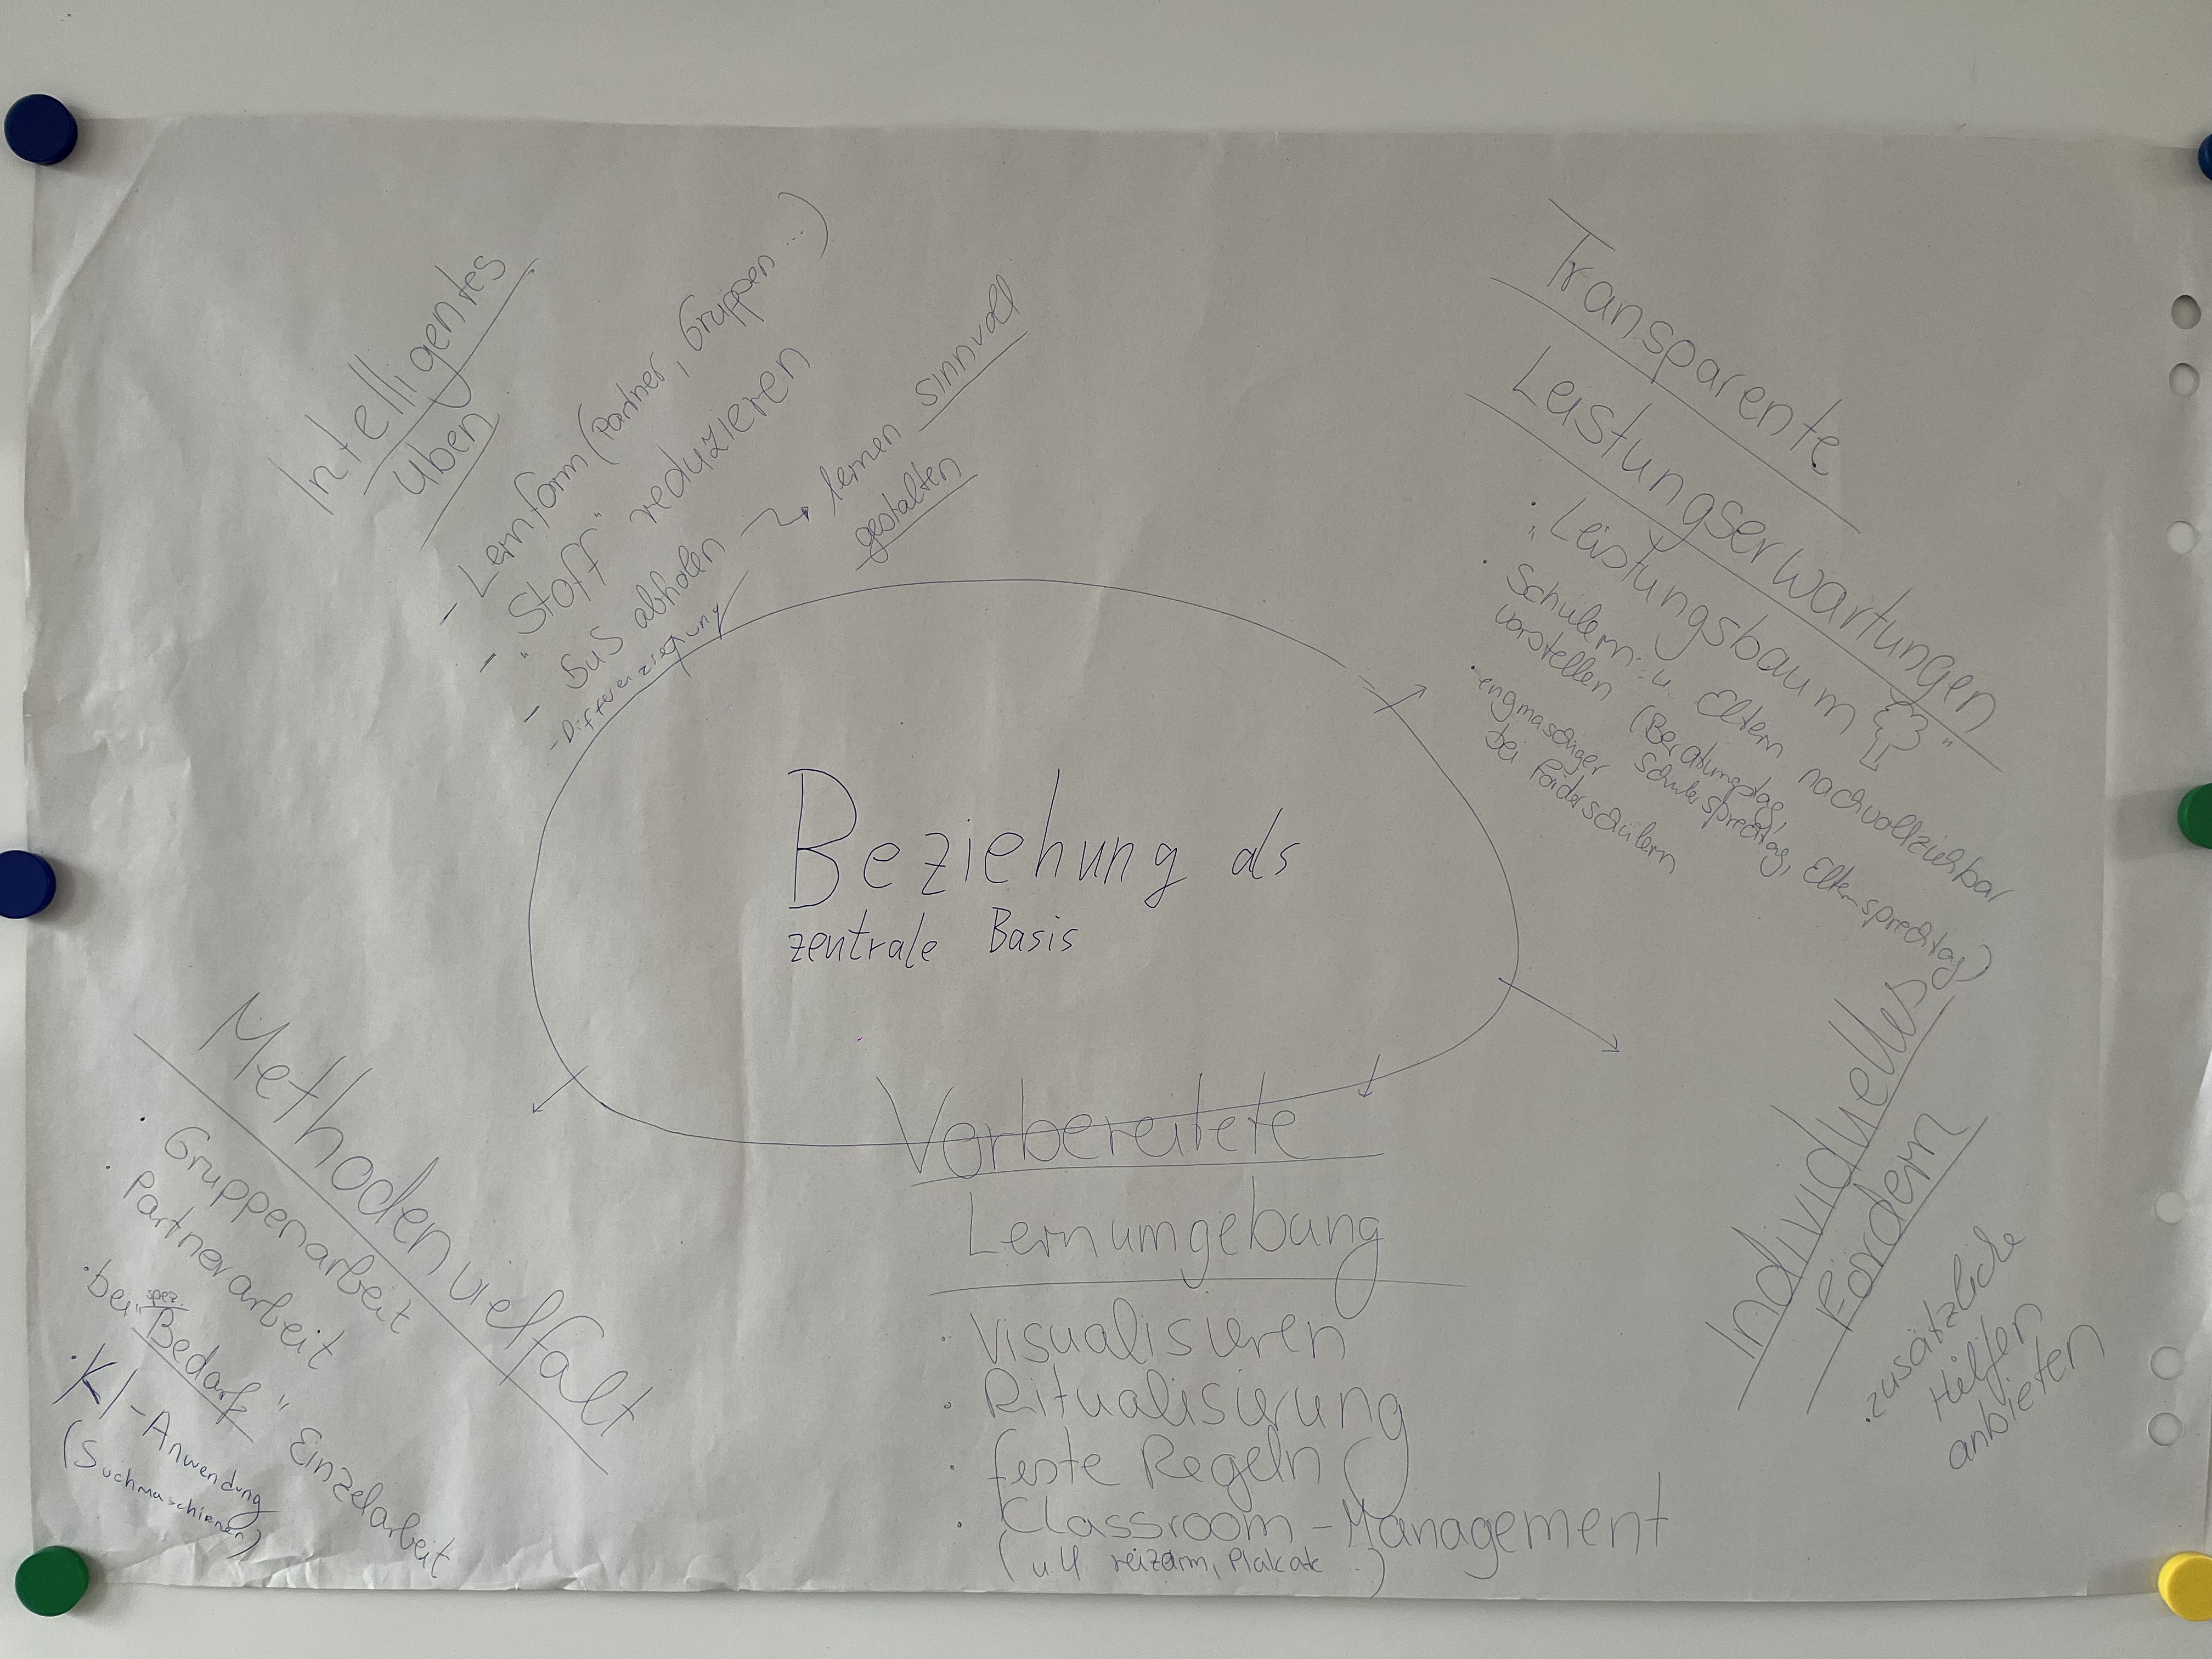 Intelligentes
Üben
- Lernform (Partner, Gruppen ...)
- "Stoff" reduzieren
- SuS abholen → lernen sinnvoll
gestalten
- Differenzierung
Transparente
Leistungserwartungen
· "Leistungsbaum"
· Schülern u. Eltern nachvollziehbar
vorstellen (Beratungstag,
Schülersprechtag, Elternsprechtag)
· engmaschiger
bei Förderschülern
Beziehung als
zentrale Basis
Methodenvielfalt
· Gruppenarbeit
· Partnerarbeit
· bei "spez.
Bedarf" Einzelarbeit
· KI-Anwendung
(Suchmaschienen)
Vorbereitete
Lernumgebung
· visualisieren
· Ritualisierung
· feste Regeln
· Classroom-Management
( reizarm, Plakate ..)
Individuelles
Fördern
· zusätzliche
Hilfen
anbieten